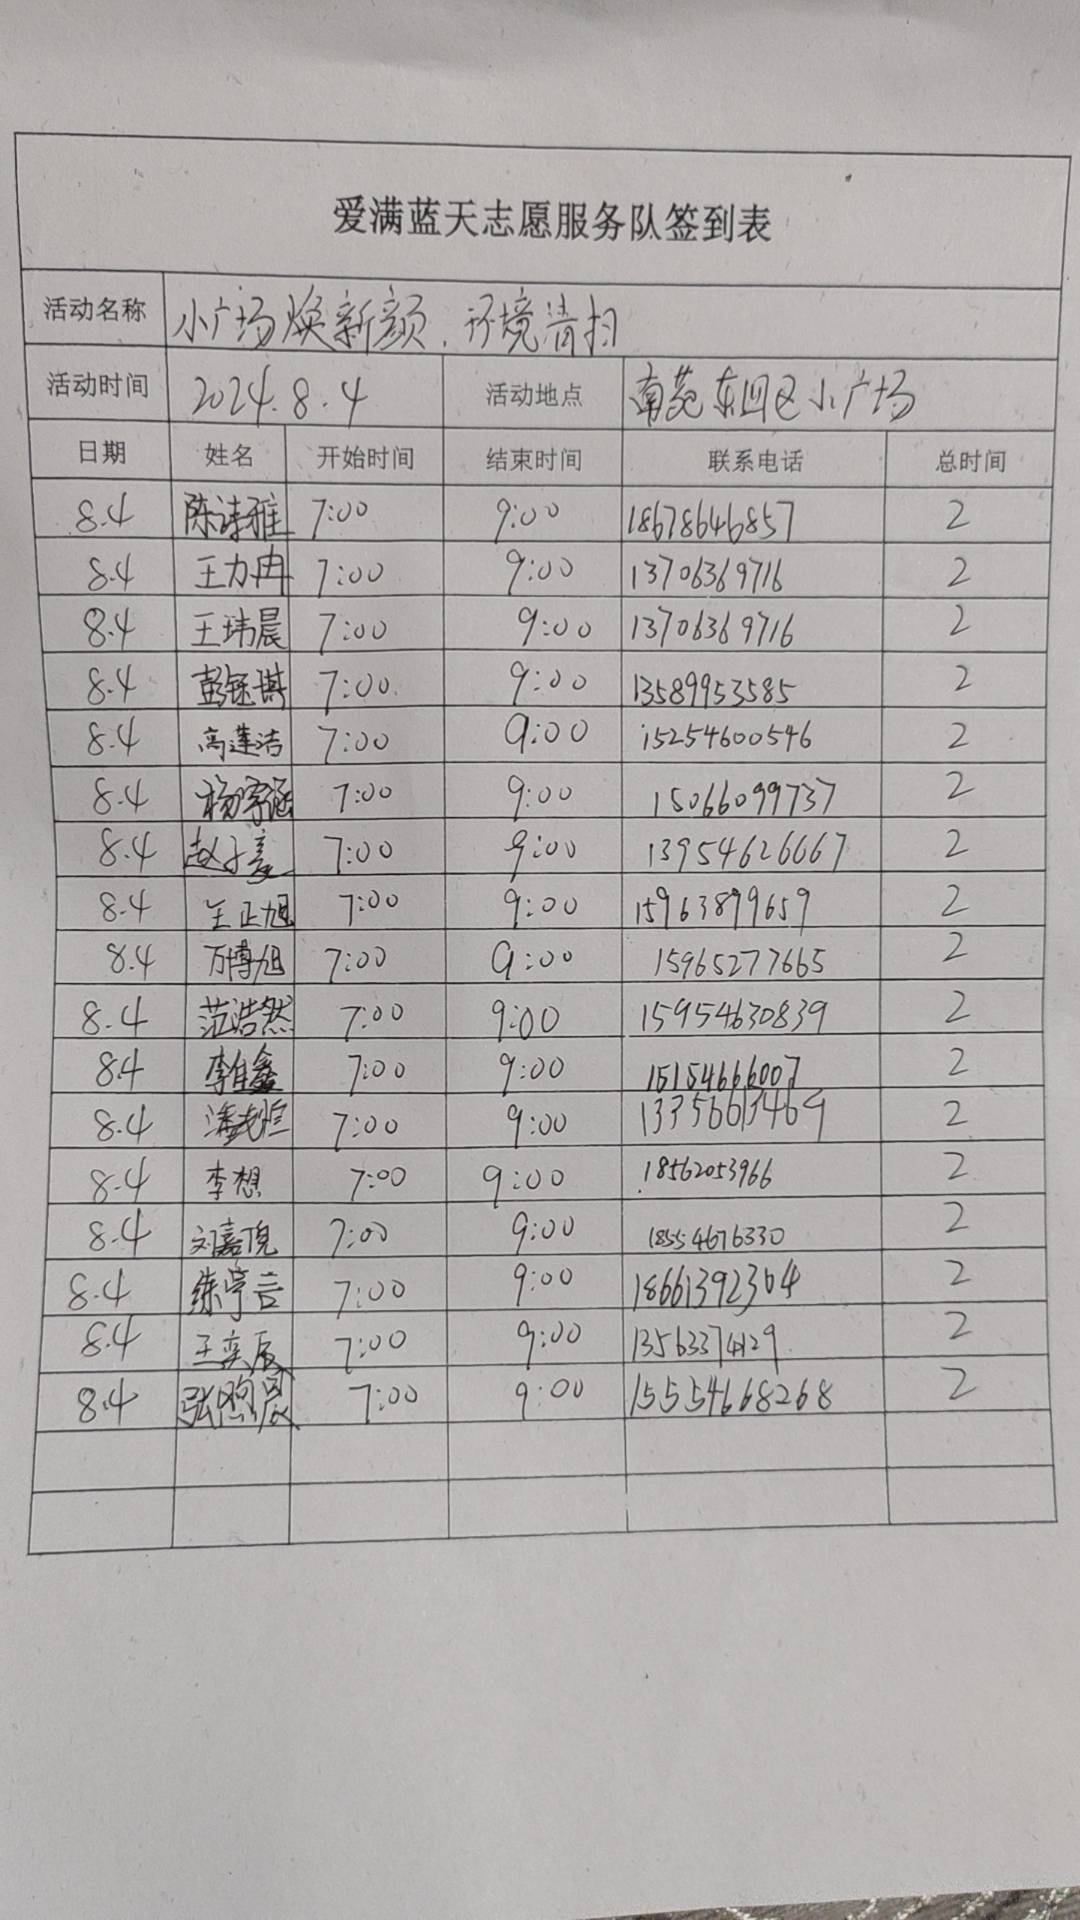 爱满蓝天志愿服务队签到表
活动名称 小广场焕新颜.环境清扫
活动时间 2024.8.4 活动地点 南苑东四区小广场
日期 姓名 开始时间 结束时间 联系电话 总时间
8.4 陈诗雅 7:00 9:00 18678646857 2
8.4 王力冉 7:00 9:00 13706369716 2
8.4 王玮晨 7:00 9:00 13706369716 2
8.4 彭钰琪 7:00 9:00 13589953585 2
8.4 高莲洁 7:00 9:00 15254600546 2
8.4 杨宗涵 7:00 9:00 15066099737 2
8.4 7:00 9:00 13954626667 2
8.4 王正旭 7:00 9:00 15963899659 2
8.4 万博旭 7:00 9:00 15965277665 2
8.4 范浩然 7:00 9:00 15954630839 2
8.4 李佳鑫 7:00 9:00 15154666007 2
8.4 7:00 9:00 13356613469 2
8.4 李想 7:00 9:00 18562053966 2
8.4 刘嘉倪 7:00 9:00 18554676330 2
8.4 7:00 9:00 18661392304 2
8.4 王奕辰 7:00 9:00 13563374129 2
8.4 张煦晨 7:00 9:00 15554668268 2